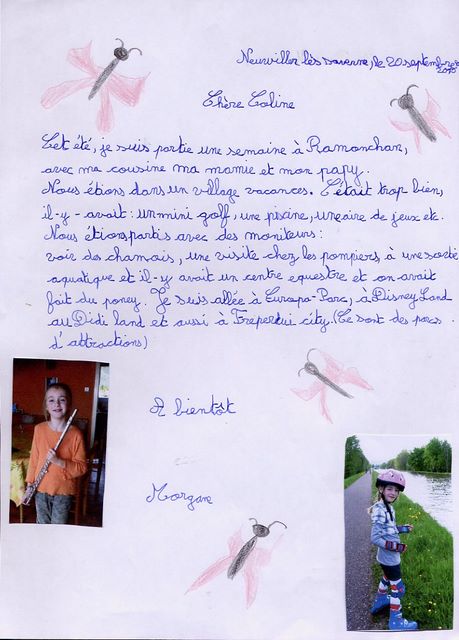 Neuwiller lès saverne, le 20 septembre
2010
Chère Coline
Cet été, je suis partie une semaine à Ramonchan,
avec ma cousine ma mamie et mon papy.
Nous étions dans un village vacances. C'était trop bien,
il-y-avait : un mini golf, une piscine, une aire de jeux etc.
Nous étions partis avec des moniteurs :
voir des chamois, une visite chez les pompiers, à une sortie
aquatique et il-y avait un centre equestre et on avait
fait du poney. Je suis allée à Europa-Parc, à Disney Land
au Didi land et aussi à city. (Ce sont des parcs
d'attractions)
A bientôt
Morgane